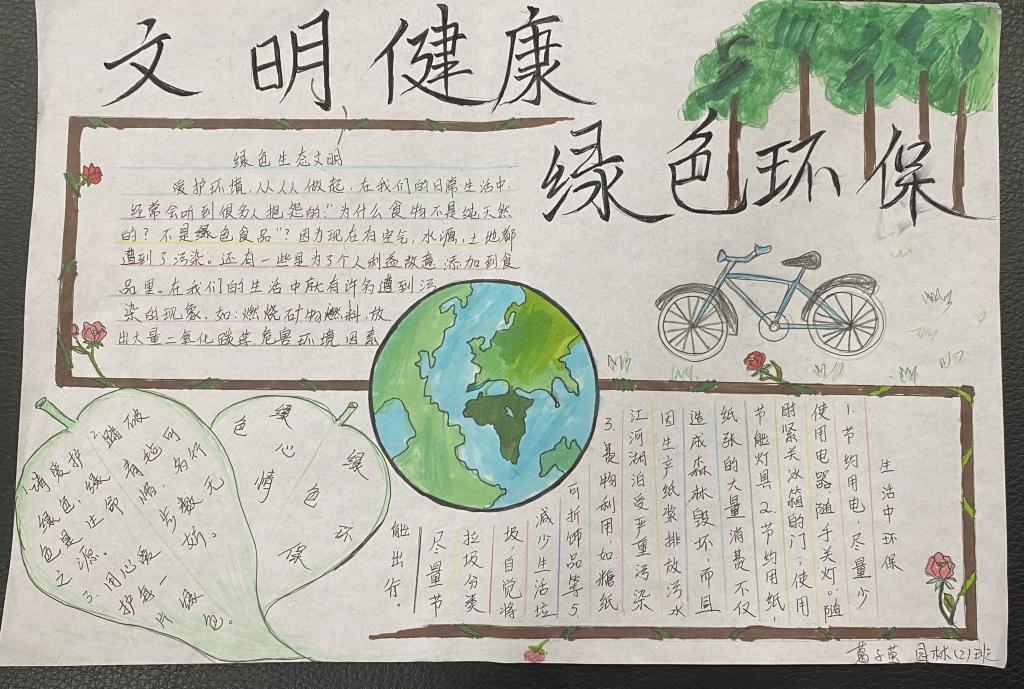 文明健康
绿色环保
绿色生态文明
爱护环境,从人人做起,在我们的日常生活中,
经常会听到很多人抱怨的:“为什么食物不是纯天然
的?不是绿色食品”?因为现在有空气,水源,土地都
遭到了污染。还有一些是为了个人利益故意添加到食
品里。在我们的生活中就有许多遭到污
染的现象,如:燃烧矿物燃料,放
出大量二氧化碳等,危害环境因素
1.请爱护
绿色,绿
色是生命
之源。
2.踏破
青地可
惜,
无数
3.用心爱
护每一
片绿
色。
绿色
心情
绿色环保
生活中环保
1.节约用电,尽量少
使用电器,随手关灯。随
时紧关冰箱的门;使用
节能灯具 2.节约用纸,
纸张的大量消费不仅
造成森林毁坏,而且
因生产纸浆排放污水
江河湖泊受严重污染
3.费物利用,如糖纸
可折饰品等5.
减少生活垃
圾,自觉将
垃圾分类
尽量节
能出行。
葛子萸 园林(2)班